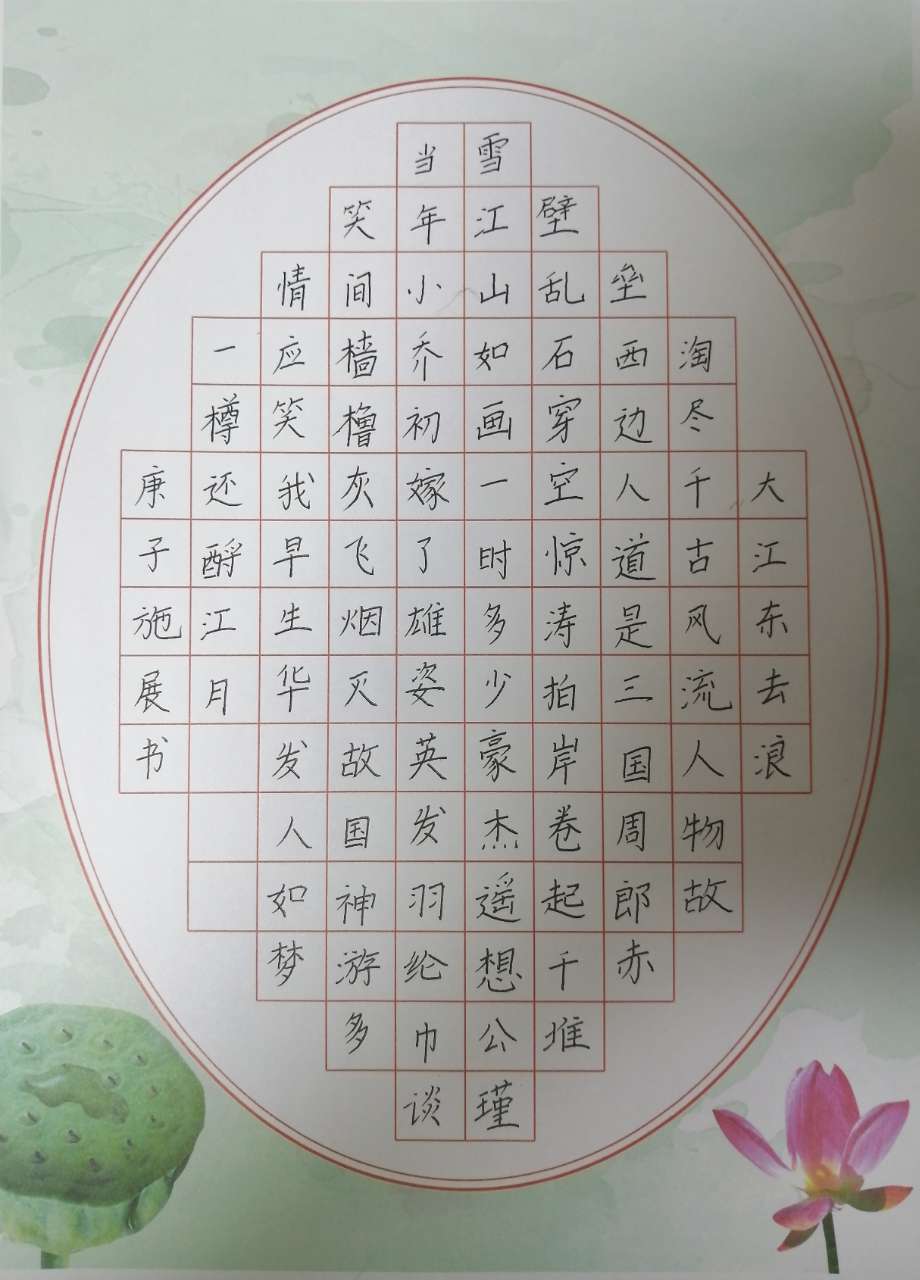 大江东去浪
淘尽千古风流人物故
垒西边人道是三国周郎赤
壁乱石穿空惊涛拍岸卷起千堆
雪江山如画一时多少豪杰遥想公瑾
当年小乔初嫁了雄姿英发羽纶巾谈
笑间樯橹灰飞烟灭故国神游多
情应笑我早生华发人如梦
一樽还酹江月
庚子施展书